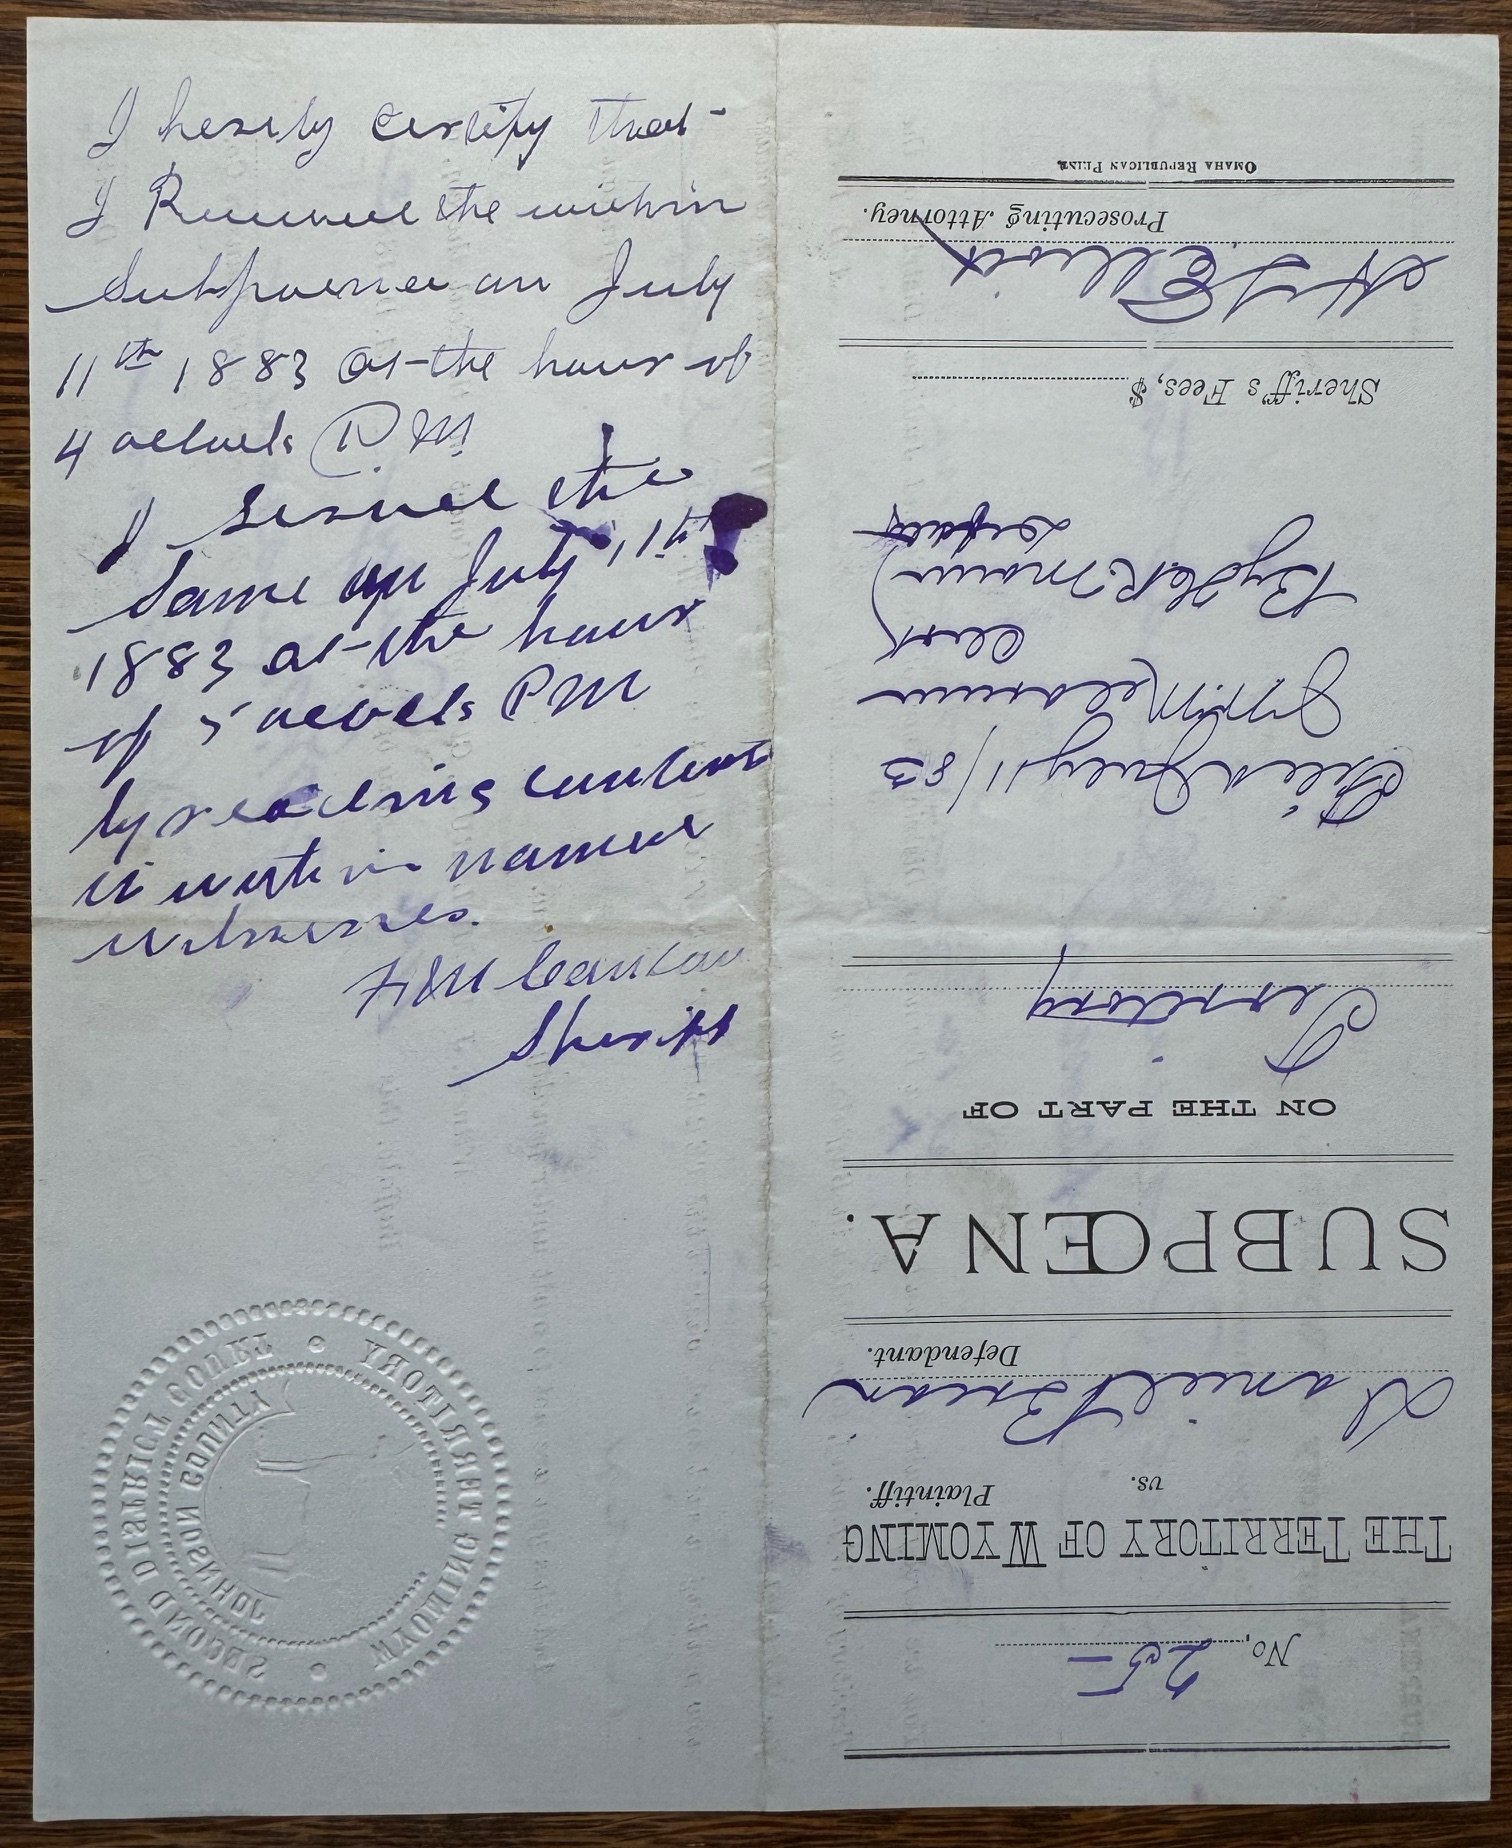 I hereby certify that
I Received the within
Subpoena on July
11th 1883 at the hour of
4 oclock P.M.
I served the
same on July 11th
1883 at the hour
of 5 oclock PM
by reading contents
to within named
witnesses.
Canton
Sheriff
SECOND DISTRICT COURT • WYOMING TERRITORY •
JOHNSON COUNTY
No. 25
THE TERRITORY OF WYOMING
Plaintiff.
vs.
Daniel
Defendant.
SUBPŒNA.
ON THE PART OF
Territory
Filed July 11/83
Clerk
By
Deputy
Sheriff's Fees, $
Elliott
Prosecuting Attorney.
OMAHA REPUBLICAN PRINT.